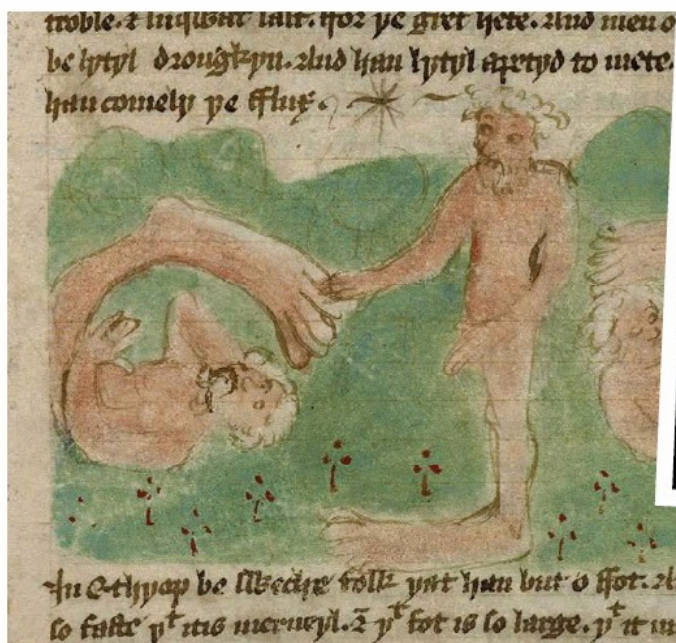 troble. & luqwar salt. ffor þe gret hete. And men o
be lytyl drougkyn. And han lytyl apetyd to mete.
han comely þe fflux.
In Ethyop be sweche folk þat han but o ffot. A
so faste þt it is merueyl. & þt fot is so large. þt it